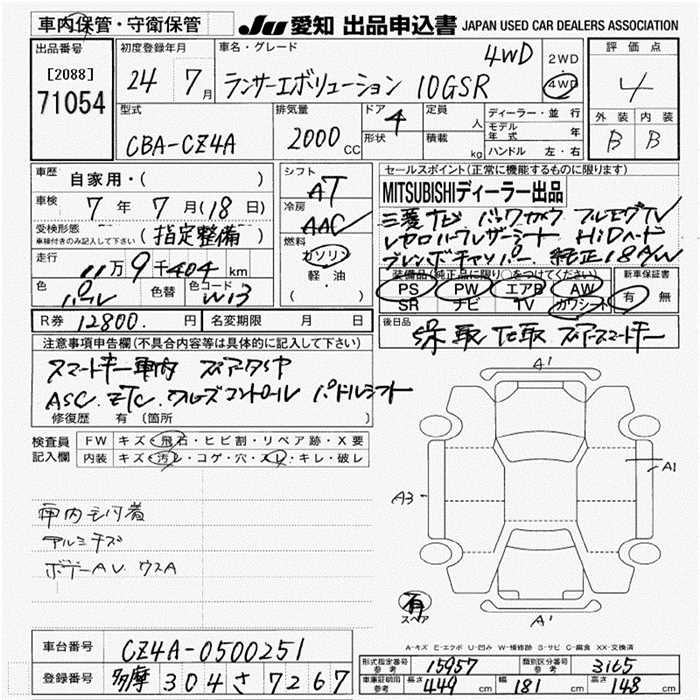 車内保管・守衛保管
JU 愛知 出品申込書 JAPAN USED CAR DEALERS ASSOCIATION
出品番号
[2088]
71054
初度登録年月
24 7月
車名・グレード
4WD
ランサーエボリューション 10GSR
2WD
4WD
評価点
4
外装 内装
B B
型式
CBA-CZ4A
排気量
2000 CC
ドア 4
形状
定員 人
積載 kg
ディーラー・並行
モデル年式 年
ハンドル 左・右
車歴 自家用・( )
車検 7年 7月(18日)
受検形態
車検付きのみ記入して下さい
(指定整備)
走行 11万9千404km
色 パール
色替
色コード W13
シフト AT
冷房 AAC
燃料 ガソリン
軽・油
セールスポイント(正常に機能するものに限ります)
MITSUBISHIディーラー出品
三菱ナビ バックカメラ フルセグTV
レカロハーフレザーシート HiDヘッド
ブレンボキャリパー 純正18A/W
装備品(純正品に限り○をつけてください)
PS PW エアB AW
SR ナビ TV カワシート
新車保証書
有 無
R券 12800.円
名変期限 月 日
後日品
保取 化取 スペアースマートキー
注意事項申告欄(不具合内容等は具体的に記入して下さい)
スマートキー車内 スペアタイヤ
ASC. ETC. クルーズコントロール パドルシフト
修復歴 有(箇所
検査員記入欄
FW キズ・飛石・ヒビ割・リペア跡・X要
内装 キズ・汚レ・コゲ・穴・スレ・キレ・破レ
車内
アルミキズ
ボデーAU ウスA
A1
A1
A3
A1
有
スペア
A-キズ E-エクボ U-凹み W-補修跡 S-サビ C-腐食 XX-交換済
車台番号 CZ4A-0500251
登録番号 多摩 304 さ 7267
形式指定番号 参考 15957
類別区分番号 参考 3165
車庫証明用 参考
長さ 449 cm
幅 181 cm
高さ 148 cm